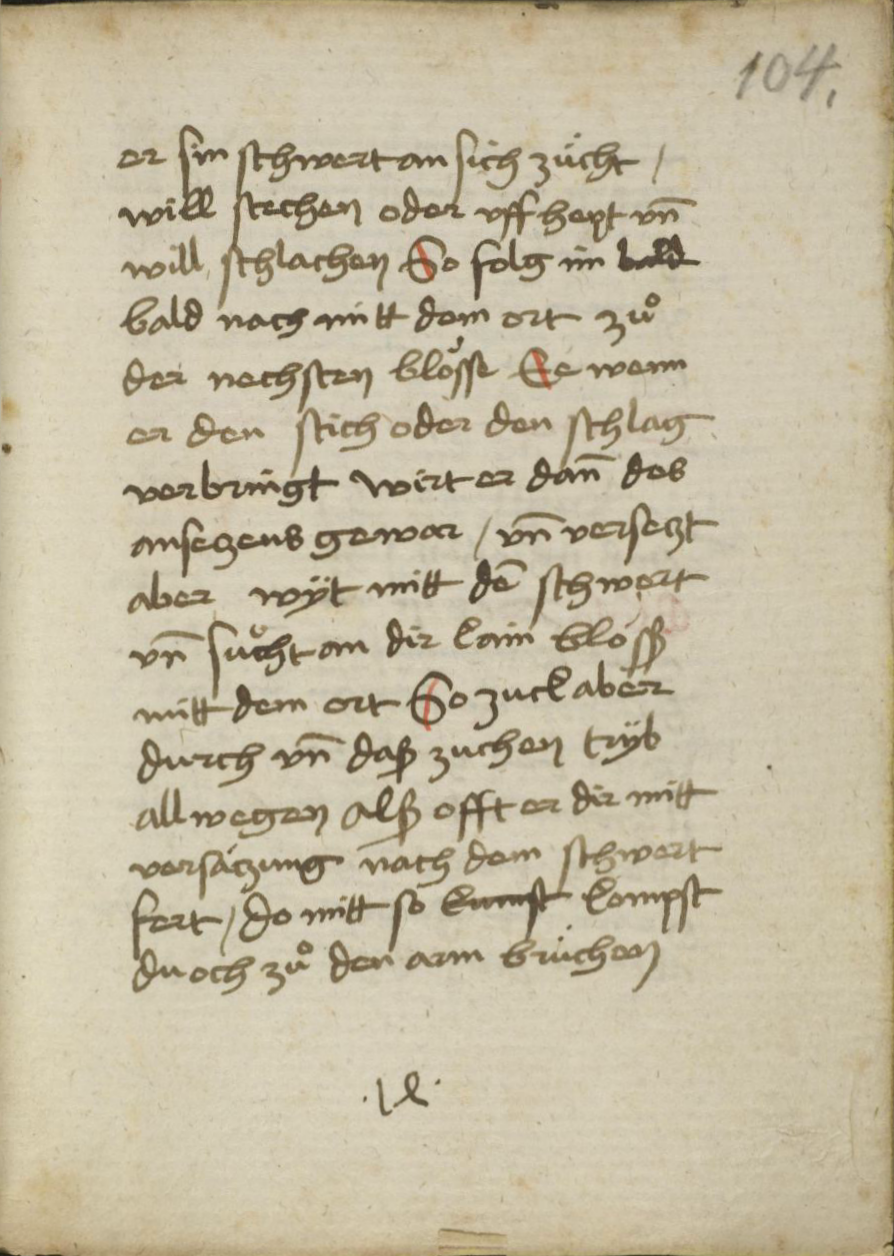 104.
er sin schwert an sich zücht /
will stechen oder vff hept vn̄
will schlachen So folg im bald
bald nach mitt dem ort zuͦ
der nechsten blösse Ee wenn
er den stich oder den schlag
verbringt Wirt er dan̄ des
ansetzens gewar / vn̄ versetzt
aber wÿt mitt dē schwert
vn̄ suͦcht an dir kain blöß
mitt dem ort So zuck aber
durch vn̄ daß zuchen trÿb
allwegen alß offt er dir mitt
versatzung nach dem schwert
fert / do mitt so kumst kompst
du och zuͦ den arm brüchen